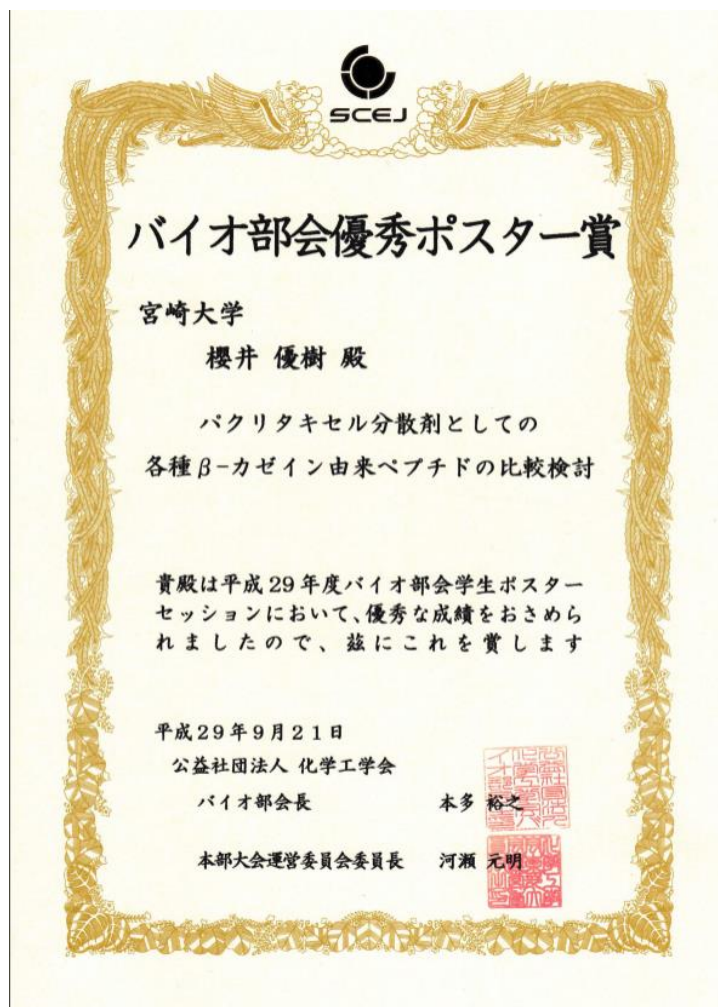 SCEJ
バイオ部会優秀ポスター賞
宮崎大学
櫻井 優樹 殿
パクリタキセル分散剤としての
各種β-カゼイン由来ペプチドの比較検討
貴殿は平成29年度バイオ部会学生ポスター
セッションにおいて、優秀な成績をおさめら
れましたので、茲にこれを賞します
平成29年9月21日
公益社団法人 化学工学会
バイオ部会長 本多 裕之
本部大会運営委員会委員長 河瀬 元明